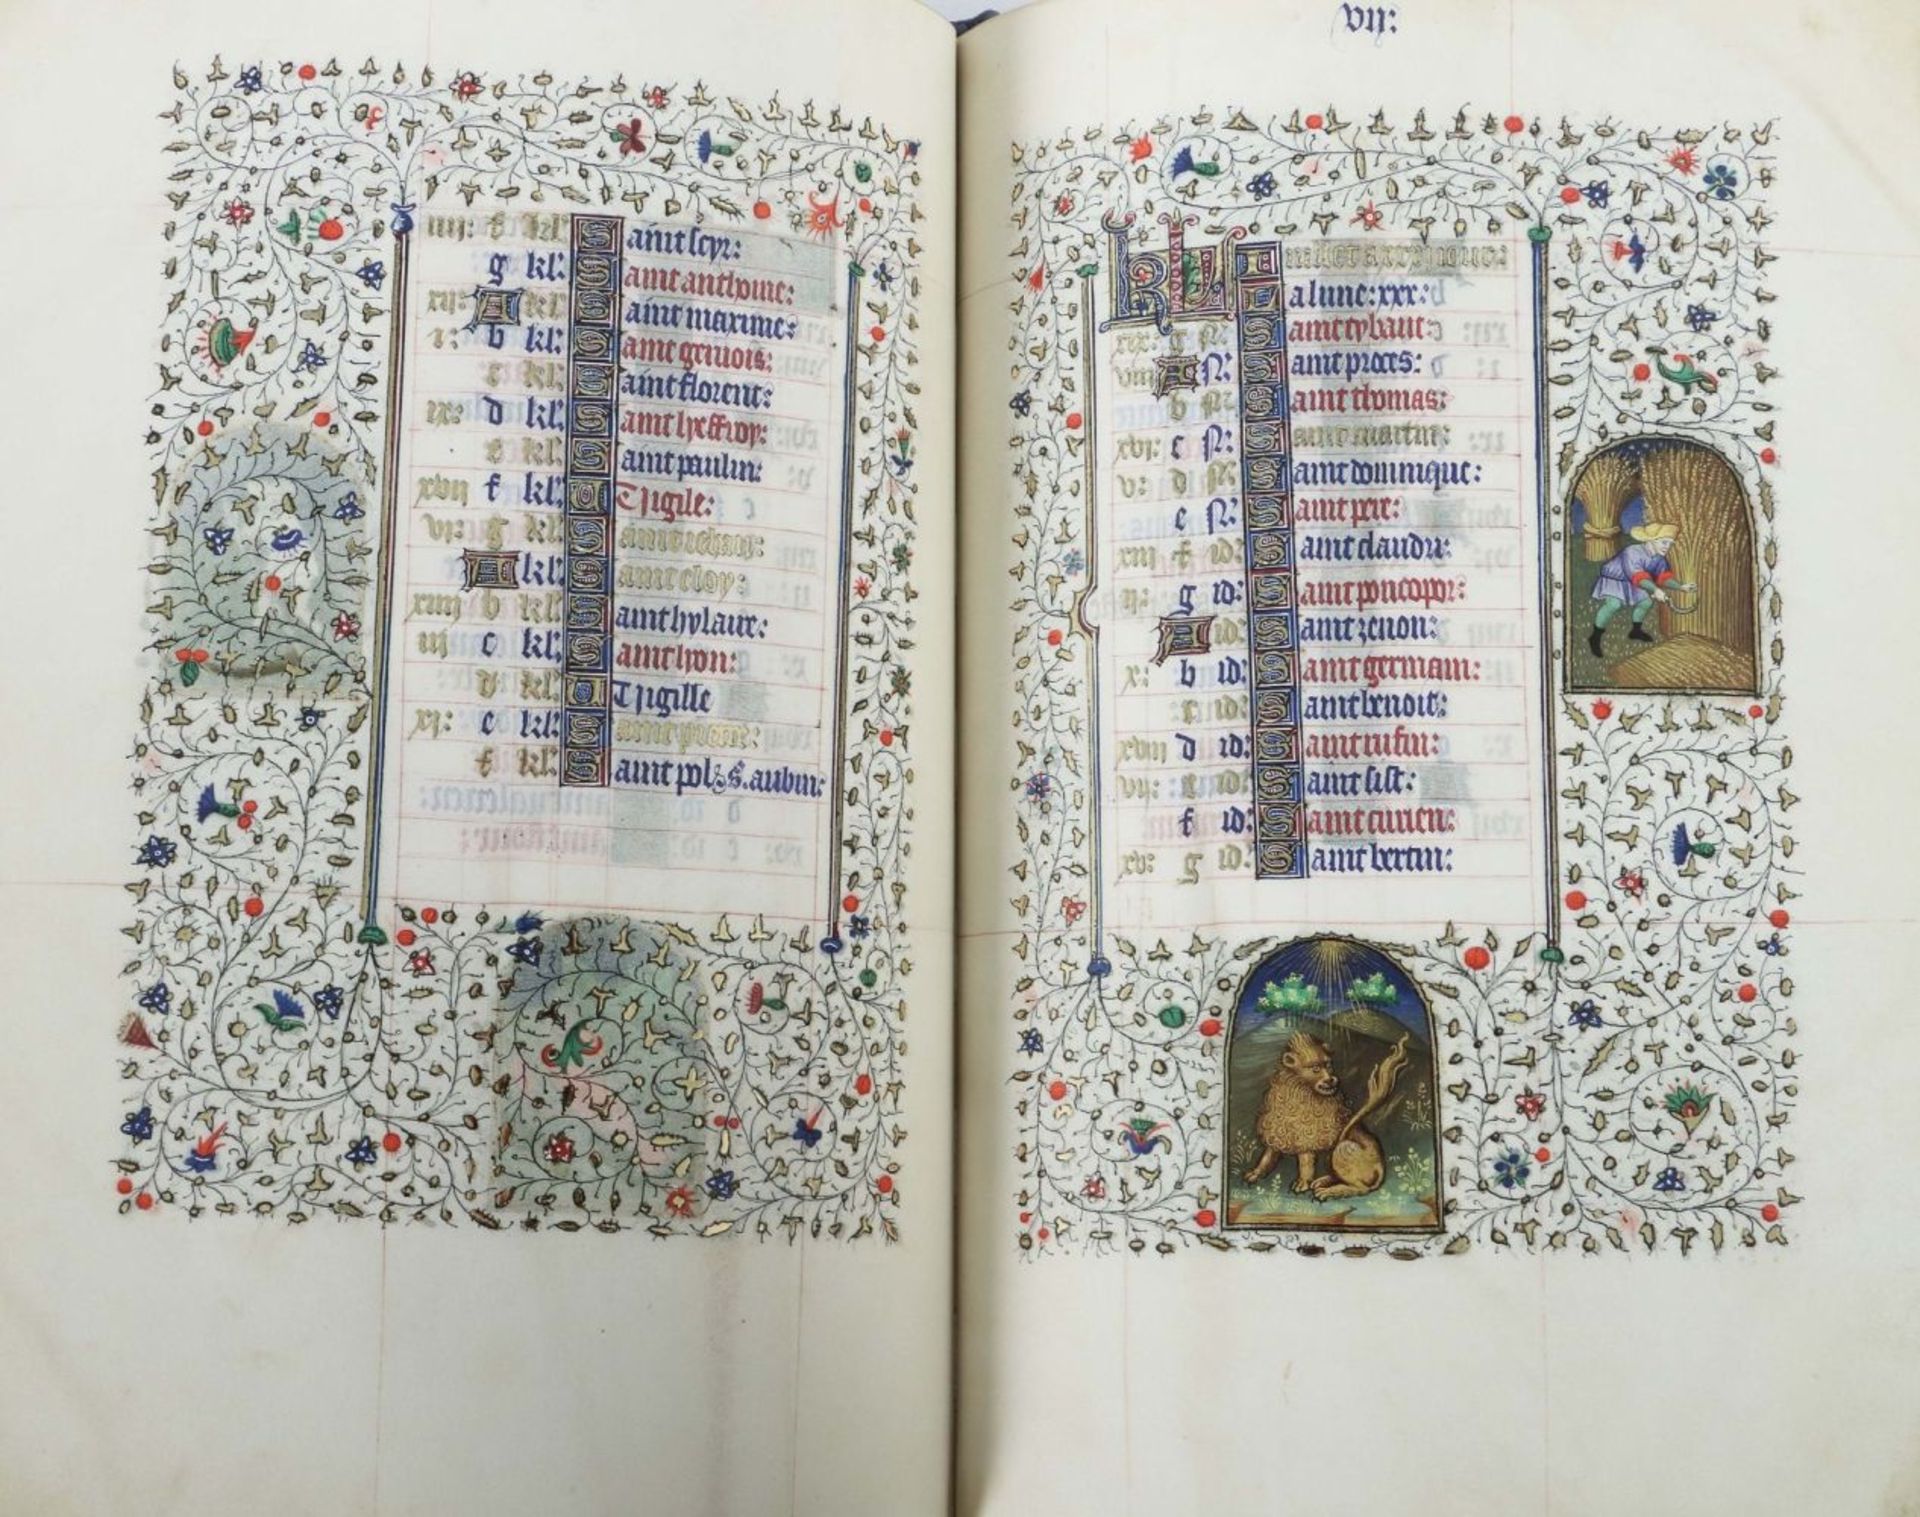 iiij: f kl': Saint scyr:
g kl': Saint anthoine:
xij: A kl': Saint maxime:
i: b kl': Saint geruois:
c kl': Saint florent:
ix: d kl': Saint lyeffroy:
e kl': Saint paulin:
xvij f kl': Vigile:
vj: g kl': Saint iehan:
A kl': Saint eloy:
xiiij b kl': Saint hylaire:
iij c kl': Saint lyon:
d kl': Vigille
xj: e kl': Saint pierre:
f kl': Saint pol & s. aubin:
vij:
KL Juillet a xxxj iours:
La lune: xxx:
xix: g N': Saint tybaut:
viij A N': Saint proces:
b N': Saint thomas:
xvj: c N': Saint martin:
v: d N': Saint dominique:
e N': Saint pere:
xiij f id': Saint claudre:
ij: g id': Saint poncopor:
A id': Saint zenon:
x: b id': Saint germain:
c id': Saint benoit:
xviij d id': Saint rufin:
vij: e id': Saint sist:
f id': Saint turien:
xv: g id': Saint bertin: